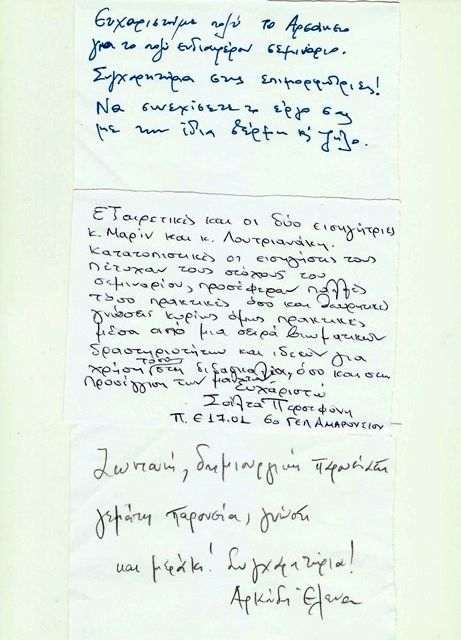 Ευχαριστούμε πολύ το Αρσάκειο
για το πολύ ενδιαφέρον σεμινάριο.
Συγχαρητήρια στις επιμορφώτριες!
Να συνεχίσετε το έργο σας
με την ίδια θέρμη κ' ζήλο.
Εξαιρετικές και οι δύο εισηγήτριες
κ. Μαρίν και κ. Λουτριανάκη.
Κατατοπιστικές οι εισηγήσεις τους
πέτυχαν τους στόχους του
σεμιναρίου, προσέφεραν πολλές
τόσο πρακτικές όσο και θεωρητικές
γνώσεις κυρίως όμως πρακτικές
μέσα από μια σειρά βιωματικών
δραστηριοτήτων και ιδεών για
χρήση τόσο στη διδασκαλία, όσο και στη
προσέγγιση των μαθητών
Ευχαριστώ
Περσεφόνη
Π.Ε 17.01 6ο ΓΕΛ ΑΜΑΡΟΥΣΙΟΥ
Ζωντανή, δημιουργική
γεμάτη παρουσία, γνώση
και μεράκι! Συγχαρητήρια!
Έλενα